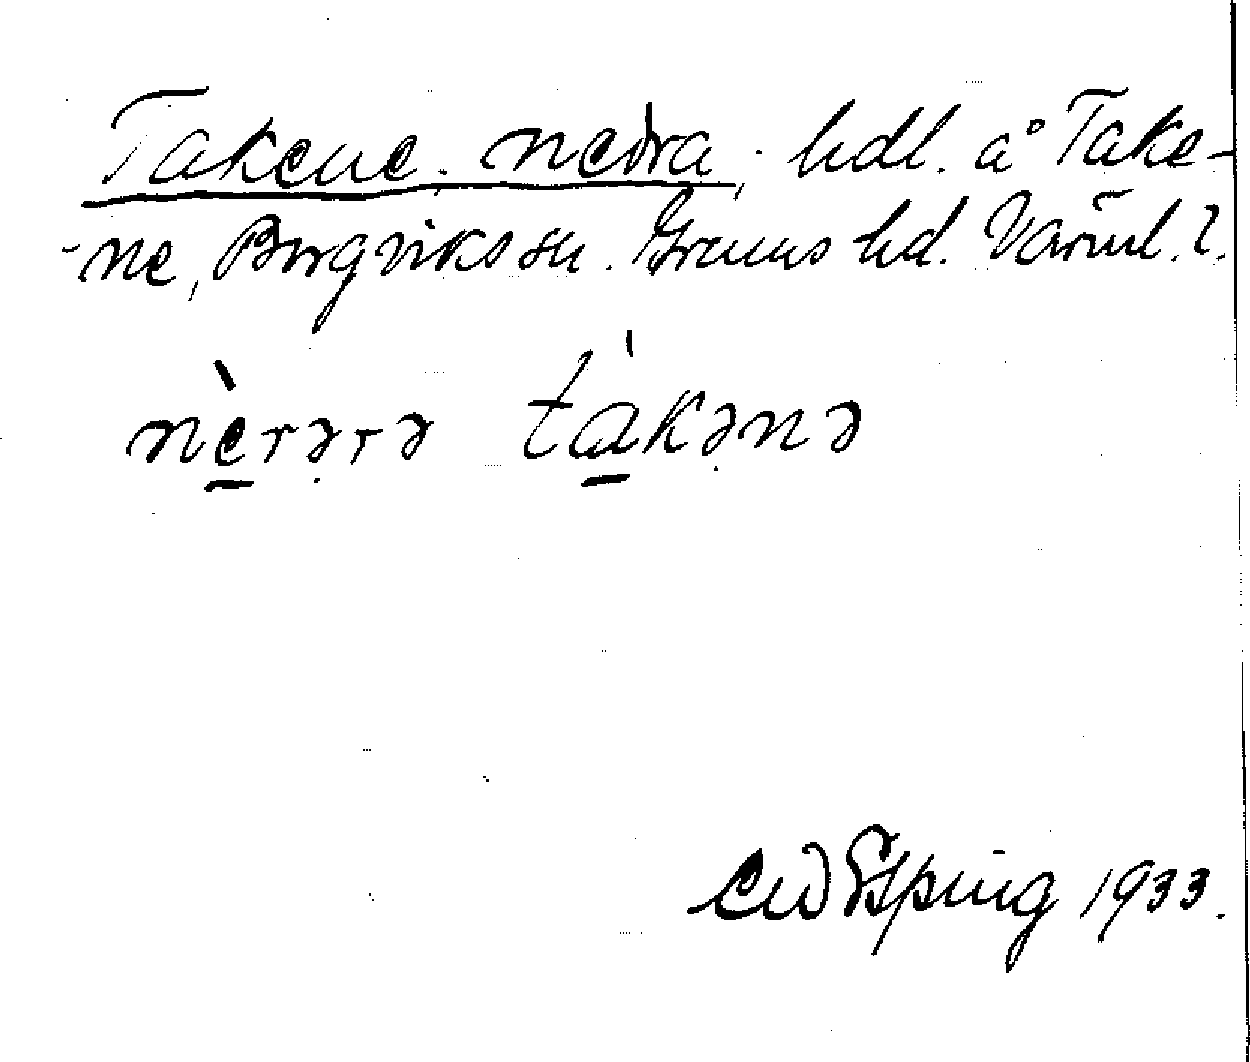 Takene, nedra, hdl. å Take-
-ne, Borgvikssn. Grums hd. Värml. l.
nè̱rərə tà̱kənə
CWEsping 1933.